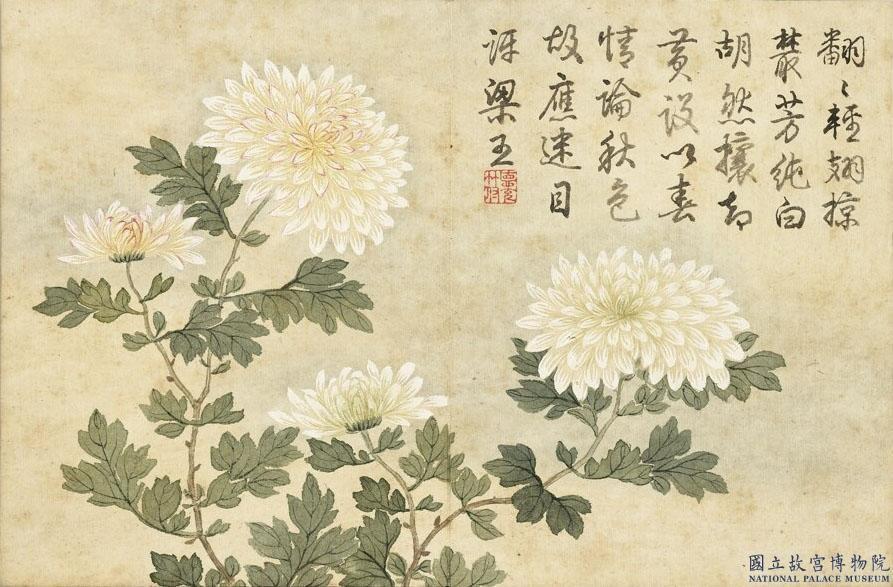 翻〻輕翅掠
叢芳純白
胡然攘却
黃設以春
情論秋色
故應迷目
梁王
國立故宮博物院
NATIONAL PALACE MUSEUM